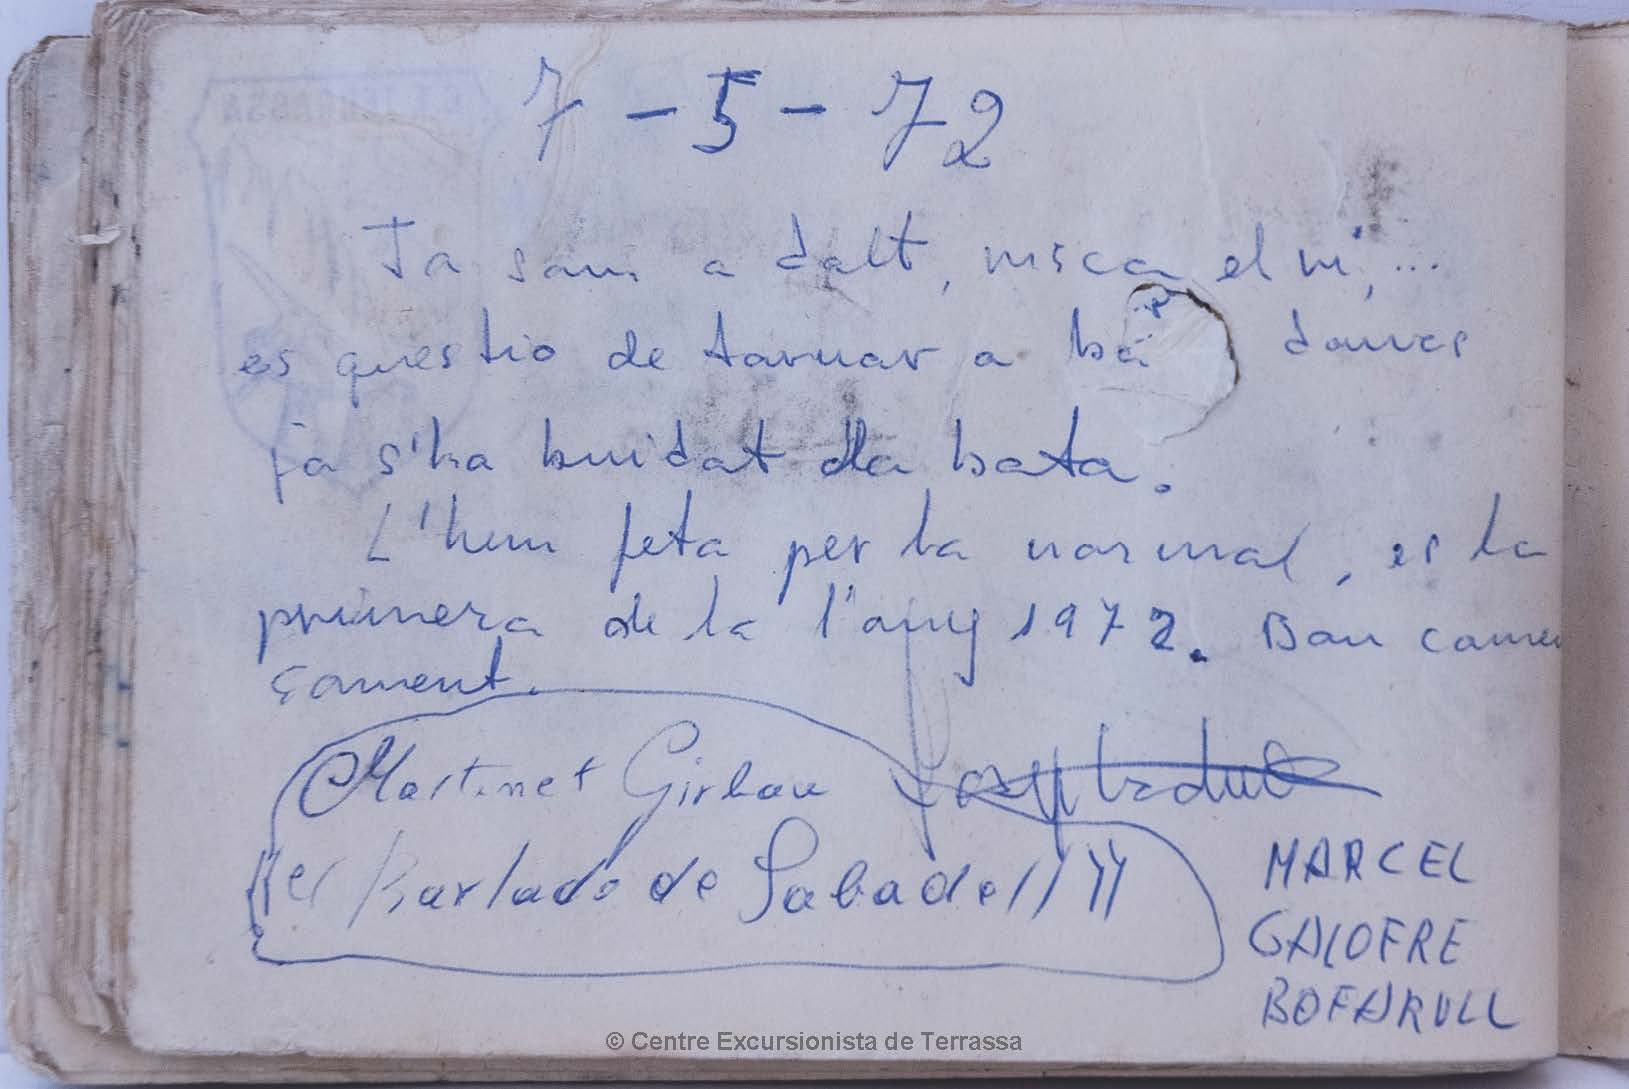 7-5-72
Ja som a dalt, visca el vi, ...
es questio de tornar a doncs
ja s'ha buidat la bota.
L'hem feta per la normal, es la
primera de la l'any 1972. Bon comen
çament.
Martinet Girbau
de Sabadell
MARCEL
GALOFRE
BOFARULL
© Centre Excursionista de Terrassa